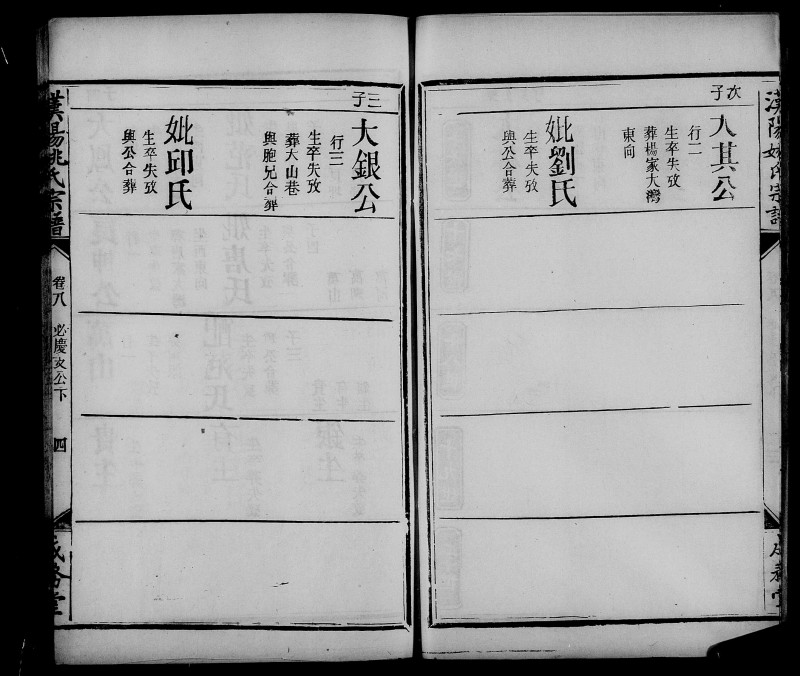 漢陽姚氏宗譜
成務堂
次子
大其公
行二
生卒失攷
葬楊家大灣
東向
妣劉氏
生卒失攷
與公合葬
三子
大銀公
行三
生卒失攷
葬大山巷
與胞兄合葬
妣邱氏
生卒失攷
與公合葬
漢陽姚氏宗譜
卷八
必慶支公下
四
成務堂